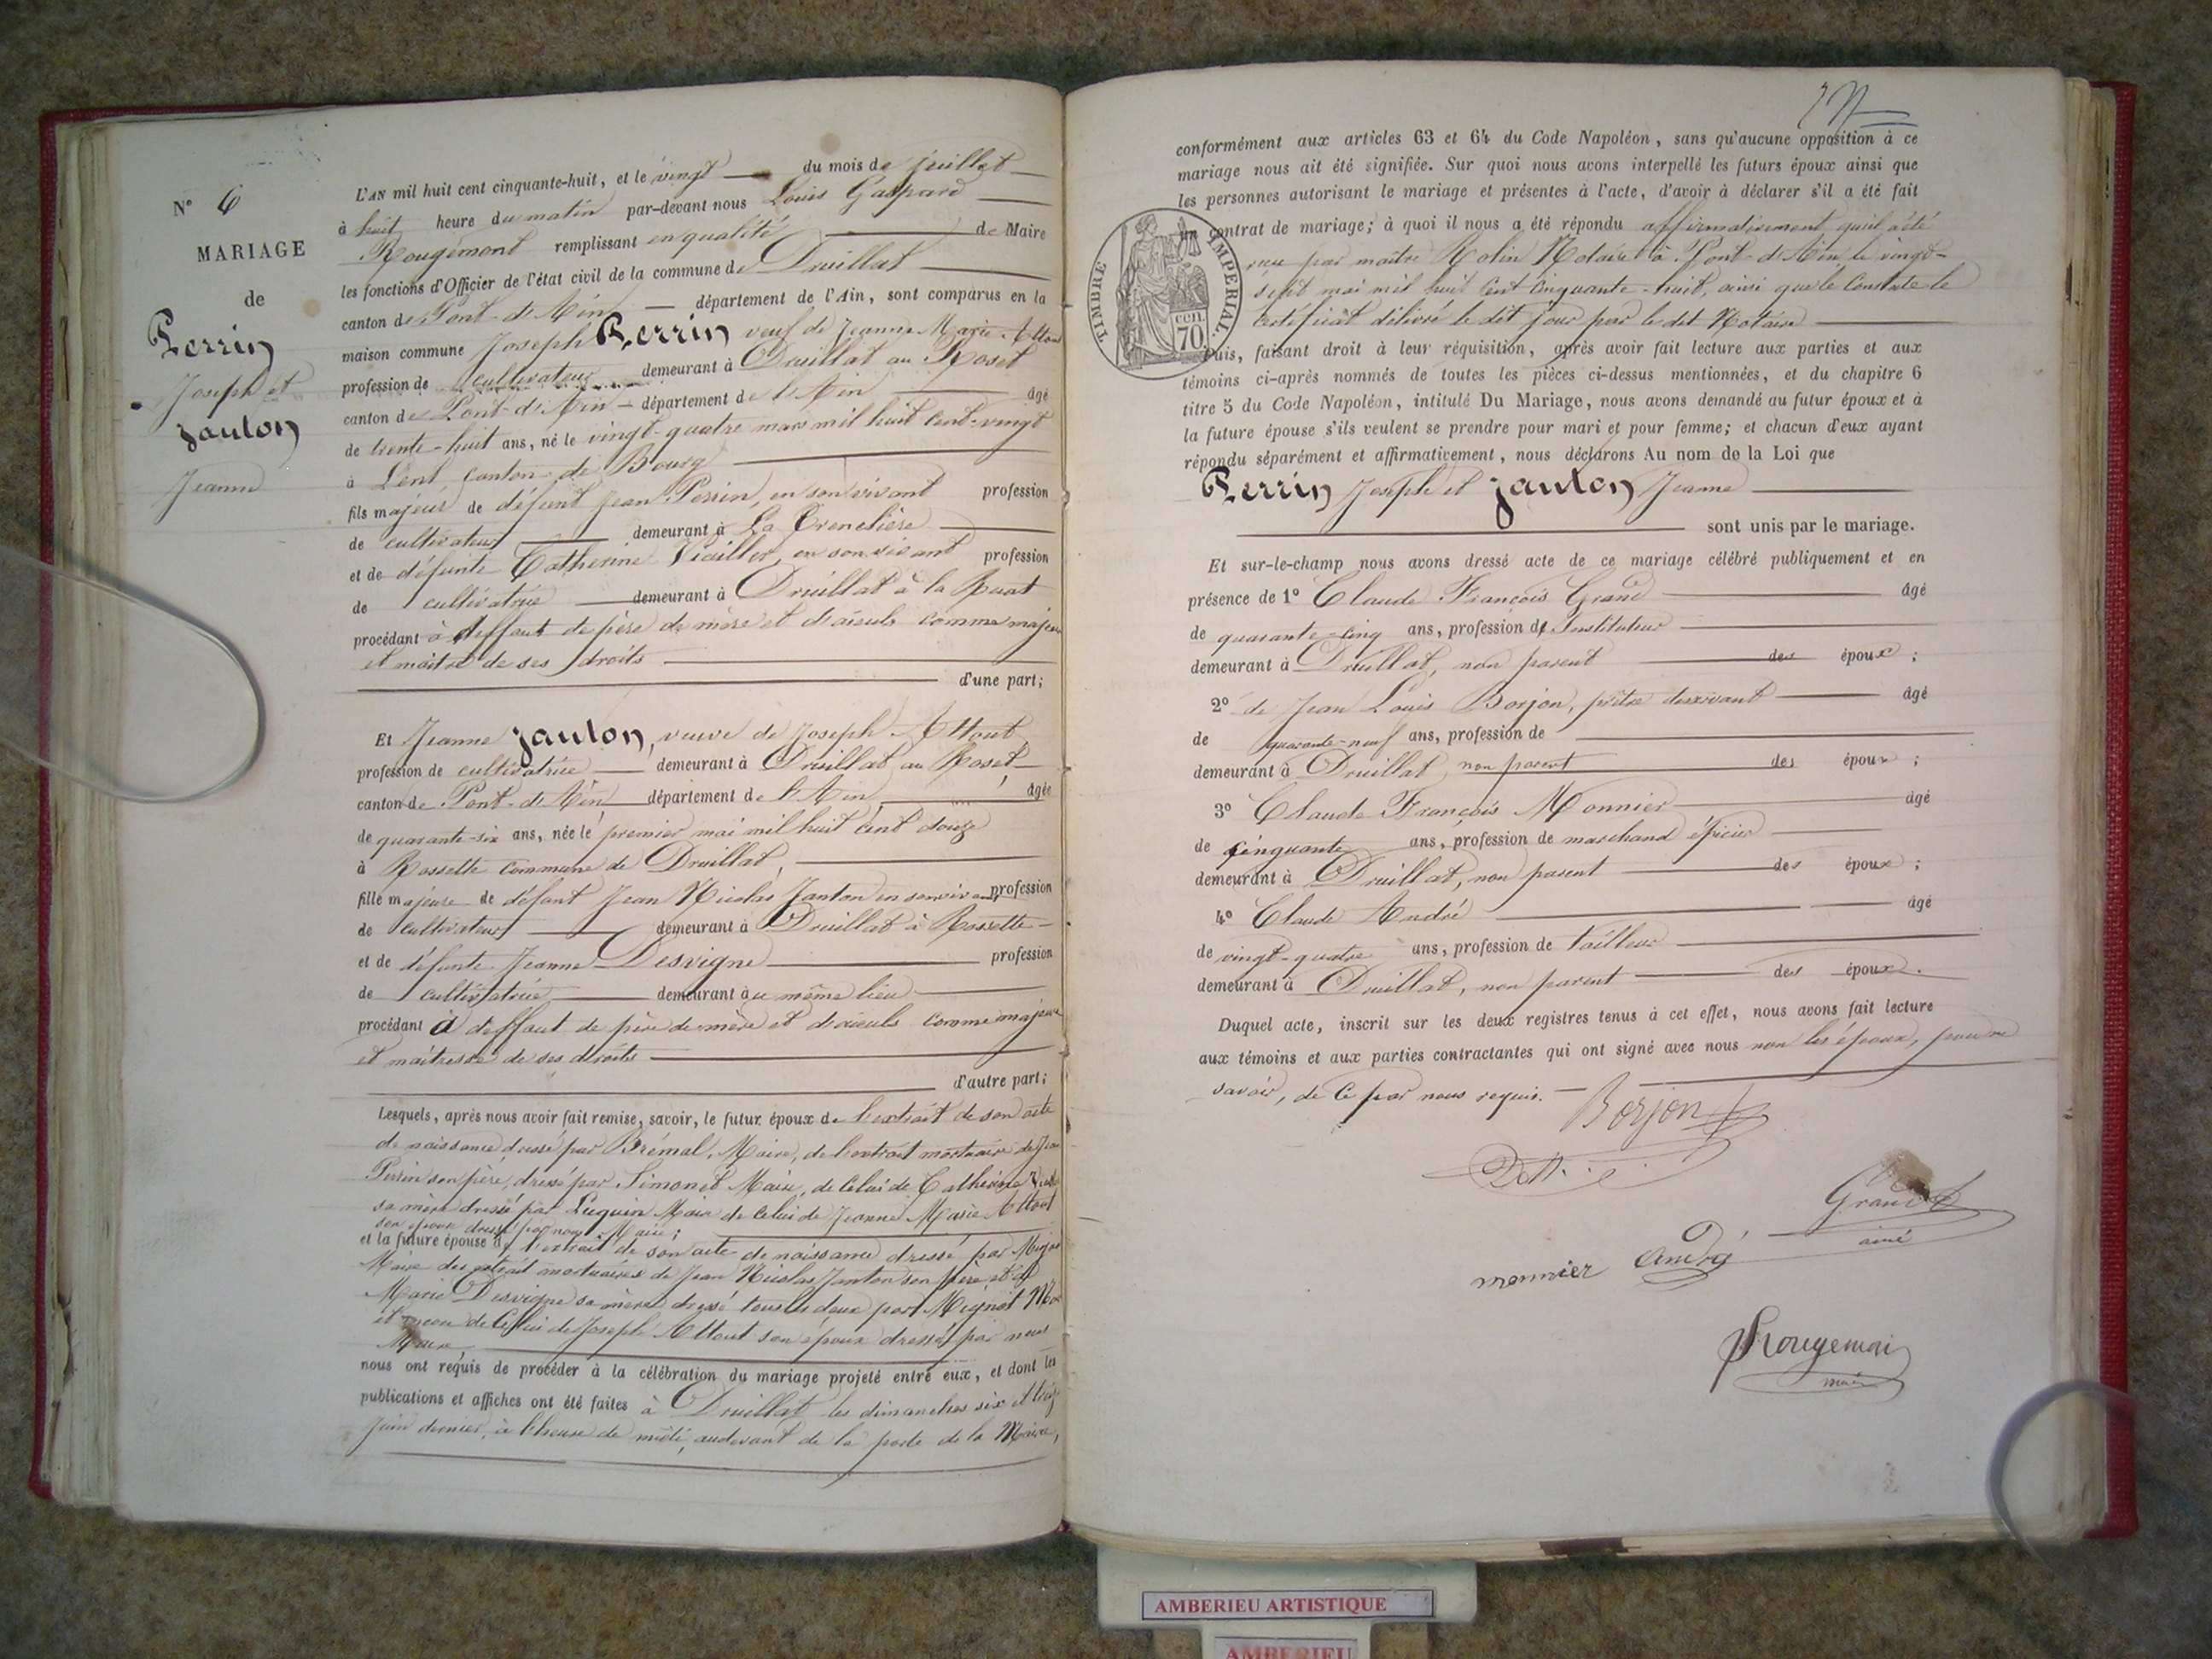 N° 6
MARIAGE
de
Perrin
Joseph et
Janton
Jeanne
L'AN mil huit cent cinquante-huit, et le vingt du mois de juillet
à huit heure du matin par-devant nous Louis Gaspard
Rougemont remplissant en qualité de Maire
les fonctions d'Officier de l'état civil de la commune de Druillat
canton de Pont-d'Ain département de l'Ain, sont comparus en la
maison commune Joseph Perrin veuf de Jeanne Marie Attout
profession de cultivateur demeurant à Druillat au Roset
canton de Pont-d'Ain département de l'Ain âgé
de trente-huit ans, né le vingt-quatre mars mil huit cent-vingt
à Lent canton de Bourg
fils majeur de défunt Jean Perrin, en son vivant profession
de cultivateur demeurant à La
et de défunte Catherine en son vivant profession
de cultivatrice demeurant à Druillat à la Ruat
procédant à deffaut de père de mère et d'aieuls comme majeur
et maître de ses droits
d'une part;
Et Jeanne Janton, veuve de Joseph Attout
profession de cultivatrice demeurant à Druillat au Roset
canton de Pont-d'Ain département de l'Ain âgée
de quarante-six ans, née le premier mai mil huit cent douze
à Rossette commune de Druillat,
fille majeure de défunt Jean Nicolas Janton en son vivant profession
de cultivateur demeurant à Druillat à Rossette
et de défunte Jeanne Desvigne profession
de cultivatrice demeurant au même lieu
procédant à deffaut de père de mère et d'aieuls comme majeure
et maîtresse de ses droits
d'autre part;
Lesquels, après nous avoir fait remise, savoir, le futur époux de l'extrait de son acte
de naissance dressé par Brémal, Maire, de l'extrait mortuaire de Jean
Perrin son père, dressé par Simonet Maire, de celui de Catherine
sa mère dressé par Luquin Maire de celui de Jeanne Marie Attout
son épouse dressé par nous Maire;
et la future épouse de l'extrait de son acte de naissance dressé par
Maire des extrait mortuaires de Jean Nicolas Janton son père et de
Marie Desvigne sa mère dressé tous les deux par Mignot
et encore de celui de Joseph Attout son époux dressé par nous
Maire
nous ont requis de procéder à la célébration du mariage projeté entre eux, et dont les
publications et affiches ont été faites à Druillat les dimanches six et treize
juin dernier, à l'heure de midi, audevant de la porte de la Mairie,
conformément aux articles 63 et 64 du Code Napoléon, sans qu'aucune opposition à ce
mariage nous ait été signifiée. Sur quoi nous avons interpellé les futurs époux ainsi que
les personnes autorisant le mariage et présentes à l'acte, d'avoir à déclarer s'il a été fait
un contrat de mariage; à quoi il nous a été répondu affirmativement qu'il a été
reçu par maître Rolin Notaire à Pont-d'Ain le vingt-
sept mai mil huit cent cinquante-huit, ainsi que le constate le
certificat délivré le dit jour par le dit Notaire
TIMBRE IMPERIAL.
CEN.
70
Puis, faisant droit à leur réquisition, après avoir fait lecture aux parties et aux
témoins ci-après nommés de toutes les pièces ci-dessus mentionnées, et du chapitre 6
titre 5 du Code Napoléon, intitulé Du Mariage, nous avons demandé au futur époux et à
la future épouse s'ils veulent se prendre pour mari et pour femme; et chacun d'eux ayant
répondu séparément et affirmativement, nous déclarons Au nom de la Loi que
Perrin Joseph et Janton Jeanne
sont unis par le mariage.
Et sur-le-champ nous avons dressé acte de ce mariage célébré publiquement et en
présence de 1° Claude François Grand âgé
de quarante-cinq ans, profession de Instituteur
demeurant à Druillat, non parent des époux;
2° de Jean Louis Borjon, prêtre desservant âgé
de quarante-neuf ans, profession de
demeurant à Druillat, non parent des époux;
3° Claude François Monnier âgé
de cinquante ans, profession de marchand épicier
demeurant à Druillat, non parent des époux;
4° Claude André âgé
de vingt-quatre ans, profession de tailleur
demeurant à Druillat, non parent des époux.
Duquel acte, inscrit sur les deux registres tenus à cet effet, nous avons fait lecture
aux témoins et aux parties contractantes qui ont signé avec nous non les époux, pour ne
savoir, de ce par nous requis.
Borjon
Grand
ainé
monnier André
Rougemont
maire
AMBERIEU ARTISTIQUE
AMBERIEU